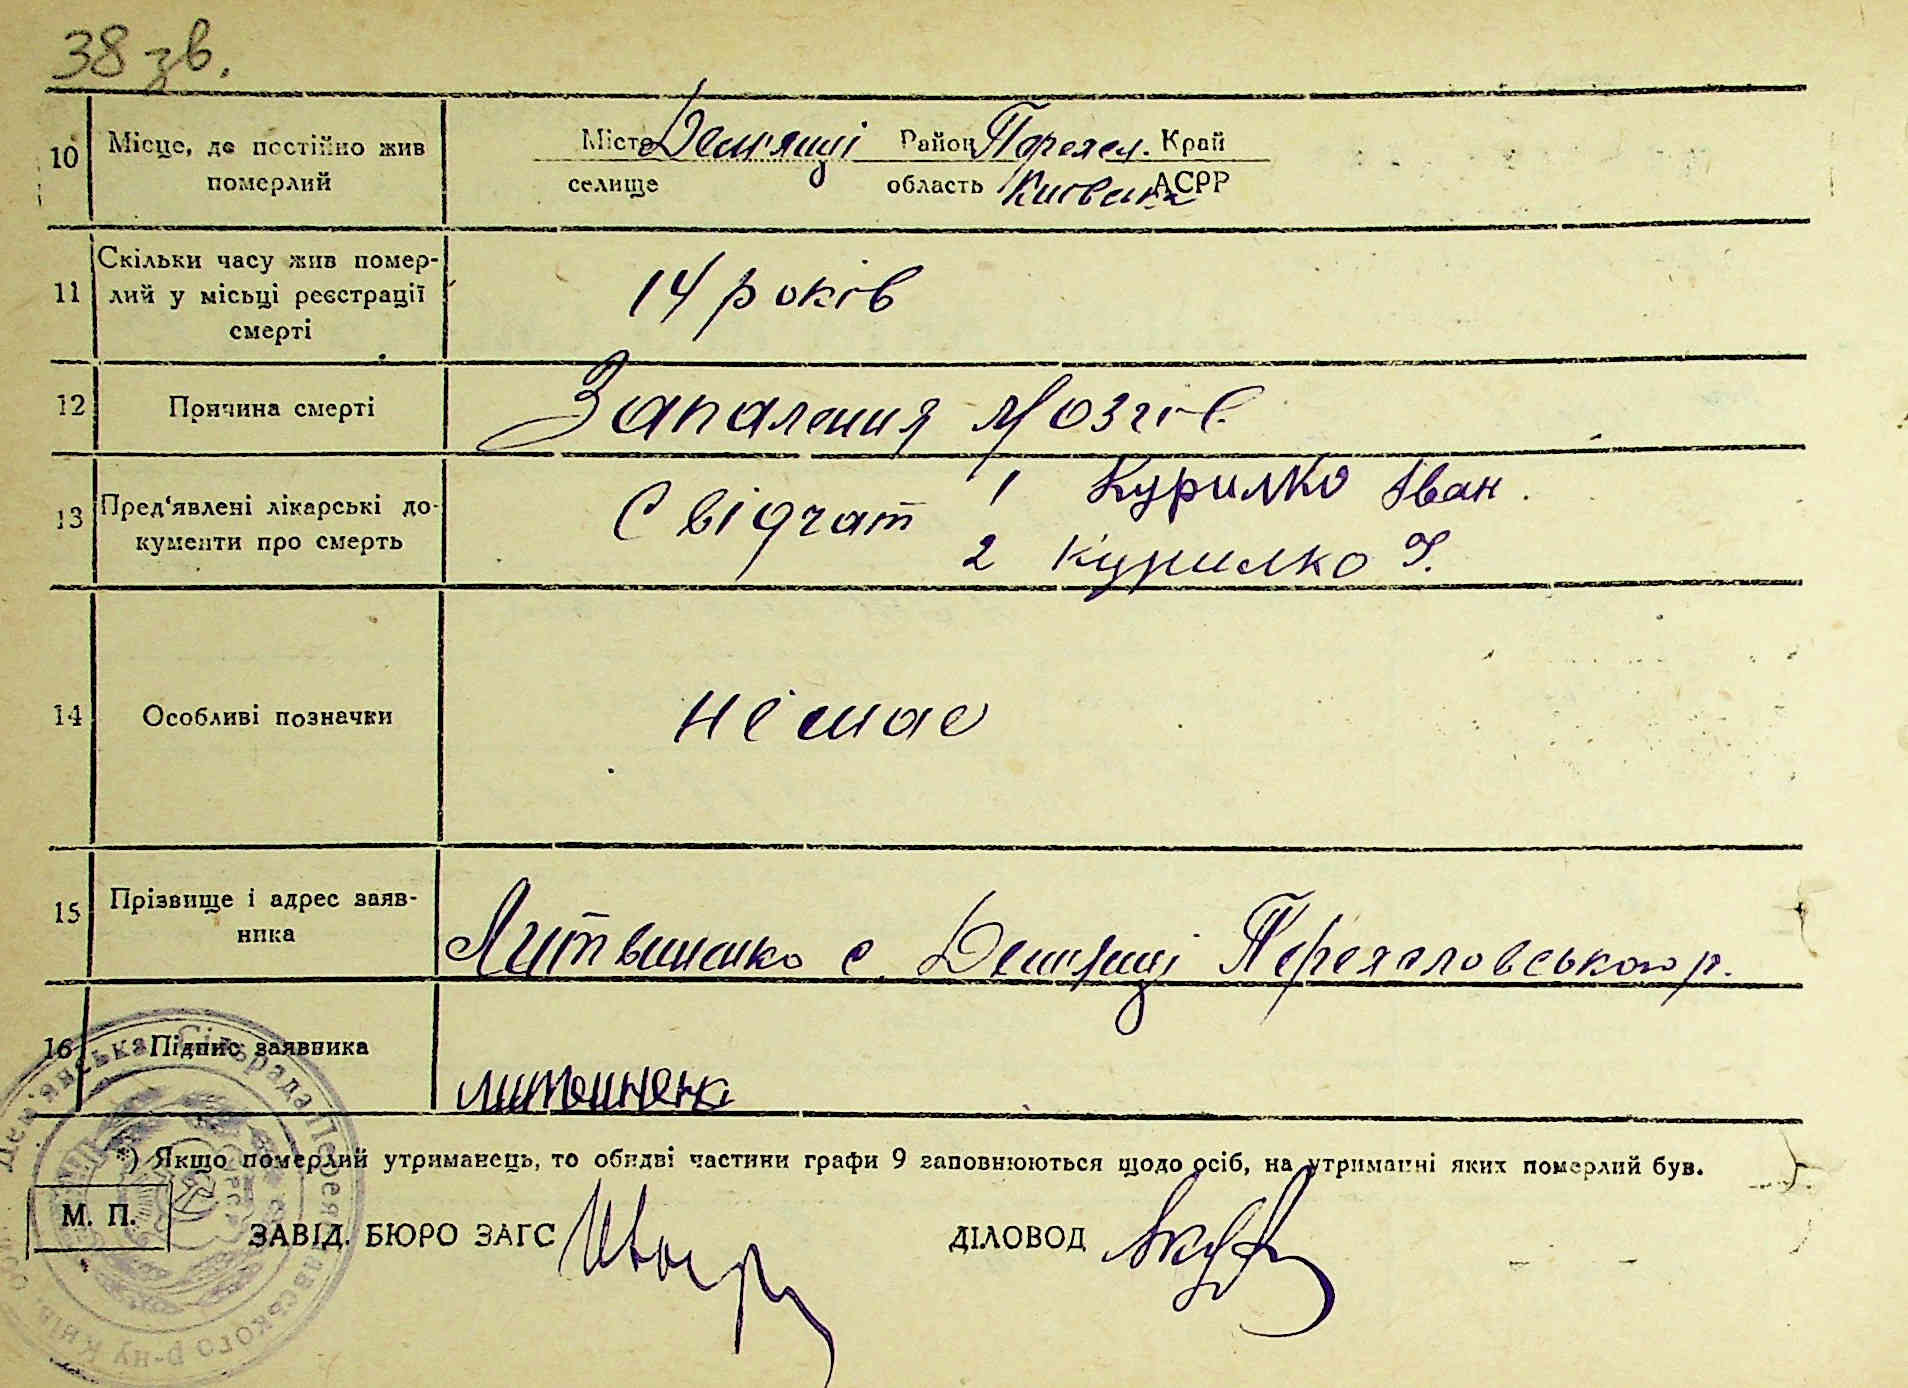 38 зв.
10 Місце, де постійно жив померлий
Місто Демянці Район Переяс. Край
селище область Київська АСРР
11 Скільки часу жив помер-
лий у місьці реєстрації
смерті
14 років
12 Причина смерті
Запалення мозгів
13 Пред'явлені лікарські до-
кументи про смерть
Свідчат 1 Курилко Іван.
2 Курилко
14 Особливі позначки
немає
15 Прізвище і адрес заяв-
ника
Литвиненко с. Демянці Переяславського р.
16 Підпис заявника
Литвиненк
*) Якщо померлий утриманець, то обидві частини графи 9 заповнюються щодо осіб, на утриманні яких померлий був.
М. П.
ЗАВІД. БЮРО ЗАГС
ДІЛОВОД
Дем'янська Сільрада Переяславського р-ну Київ.